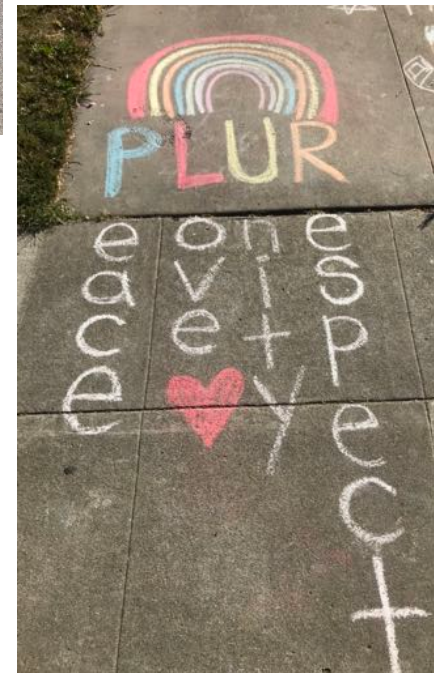 PLUR
eace
ove
nity
espect